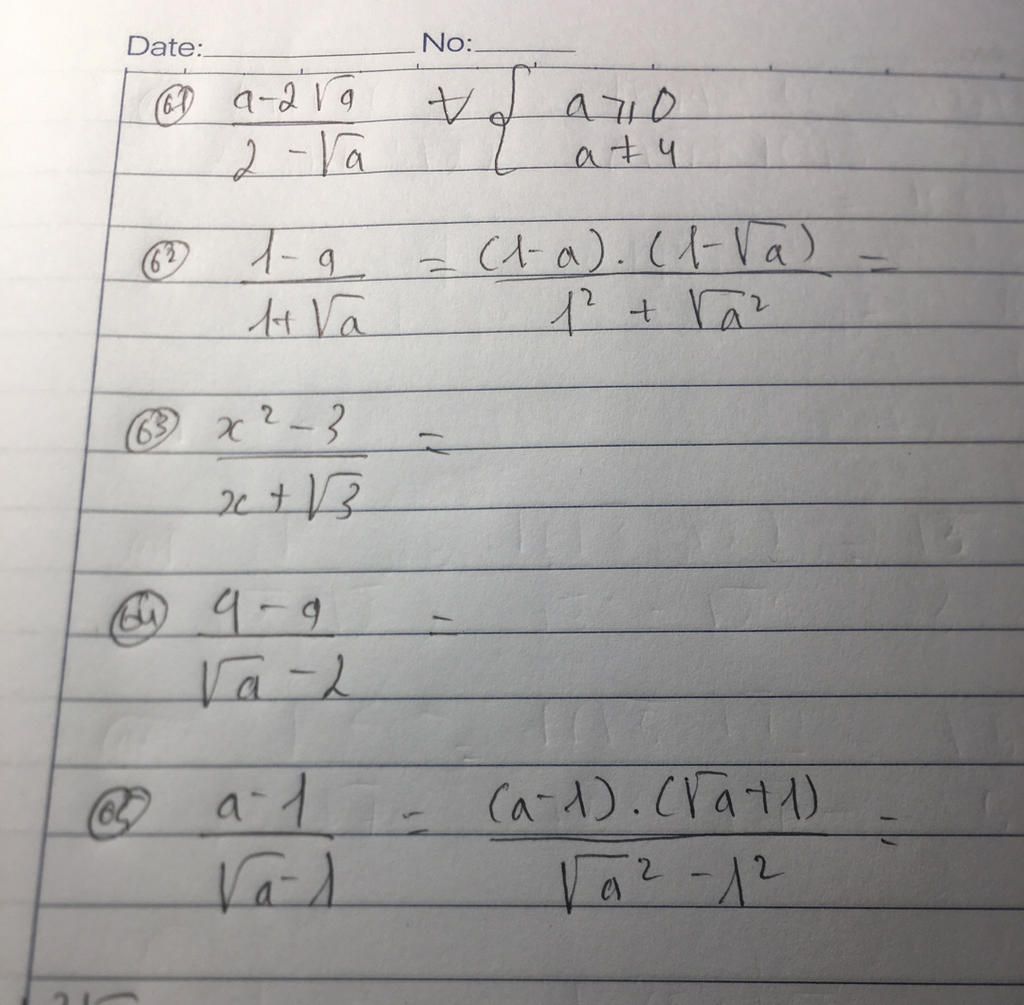 Date: No:
61 (a-2√a)/(2-√a) ∀ { a ⩾ 0
a ≠ 4
62 (1-a)/(1+√a) = ((1-a).(1-√a))/(1² + √a²) =
63 (x²-3)/(x+√3) =
64 (4-a)/(√a-2) =
65 (a-1)/(√a-1) = ((a-1).(√a+1))/(√a² - 1²) =